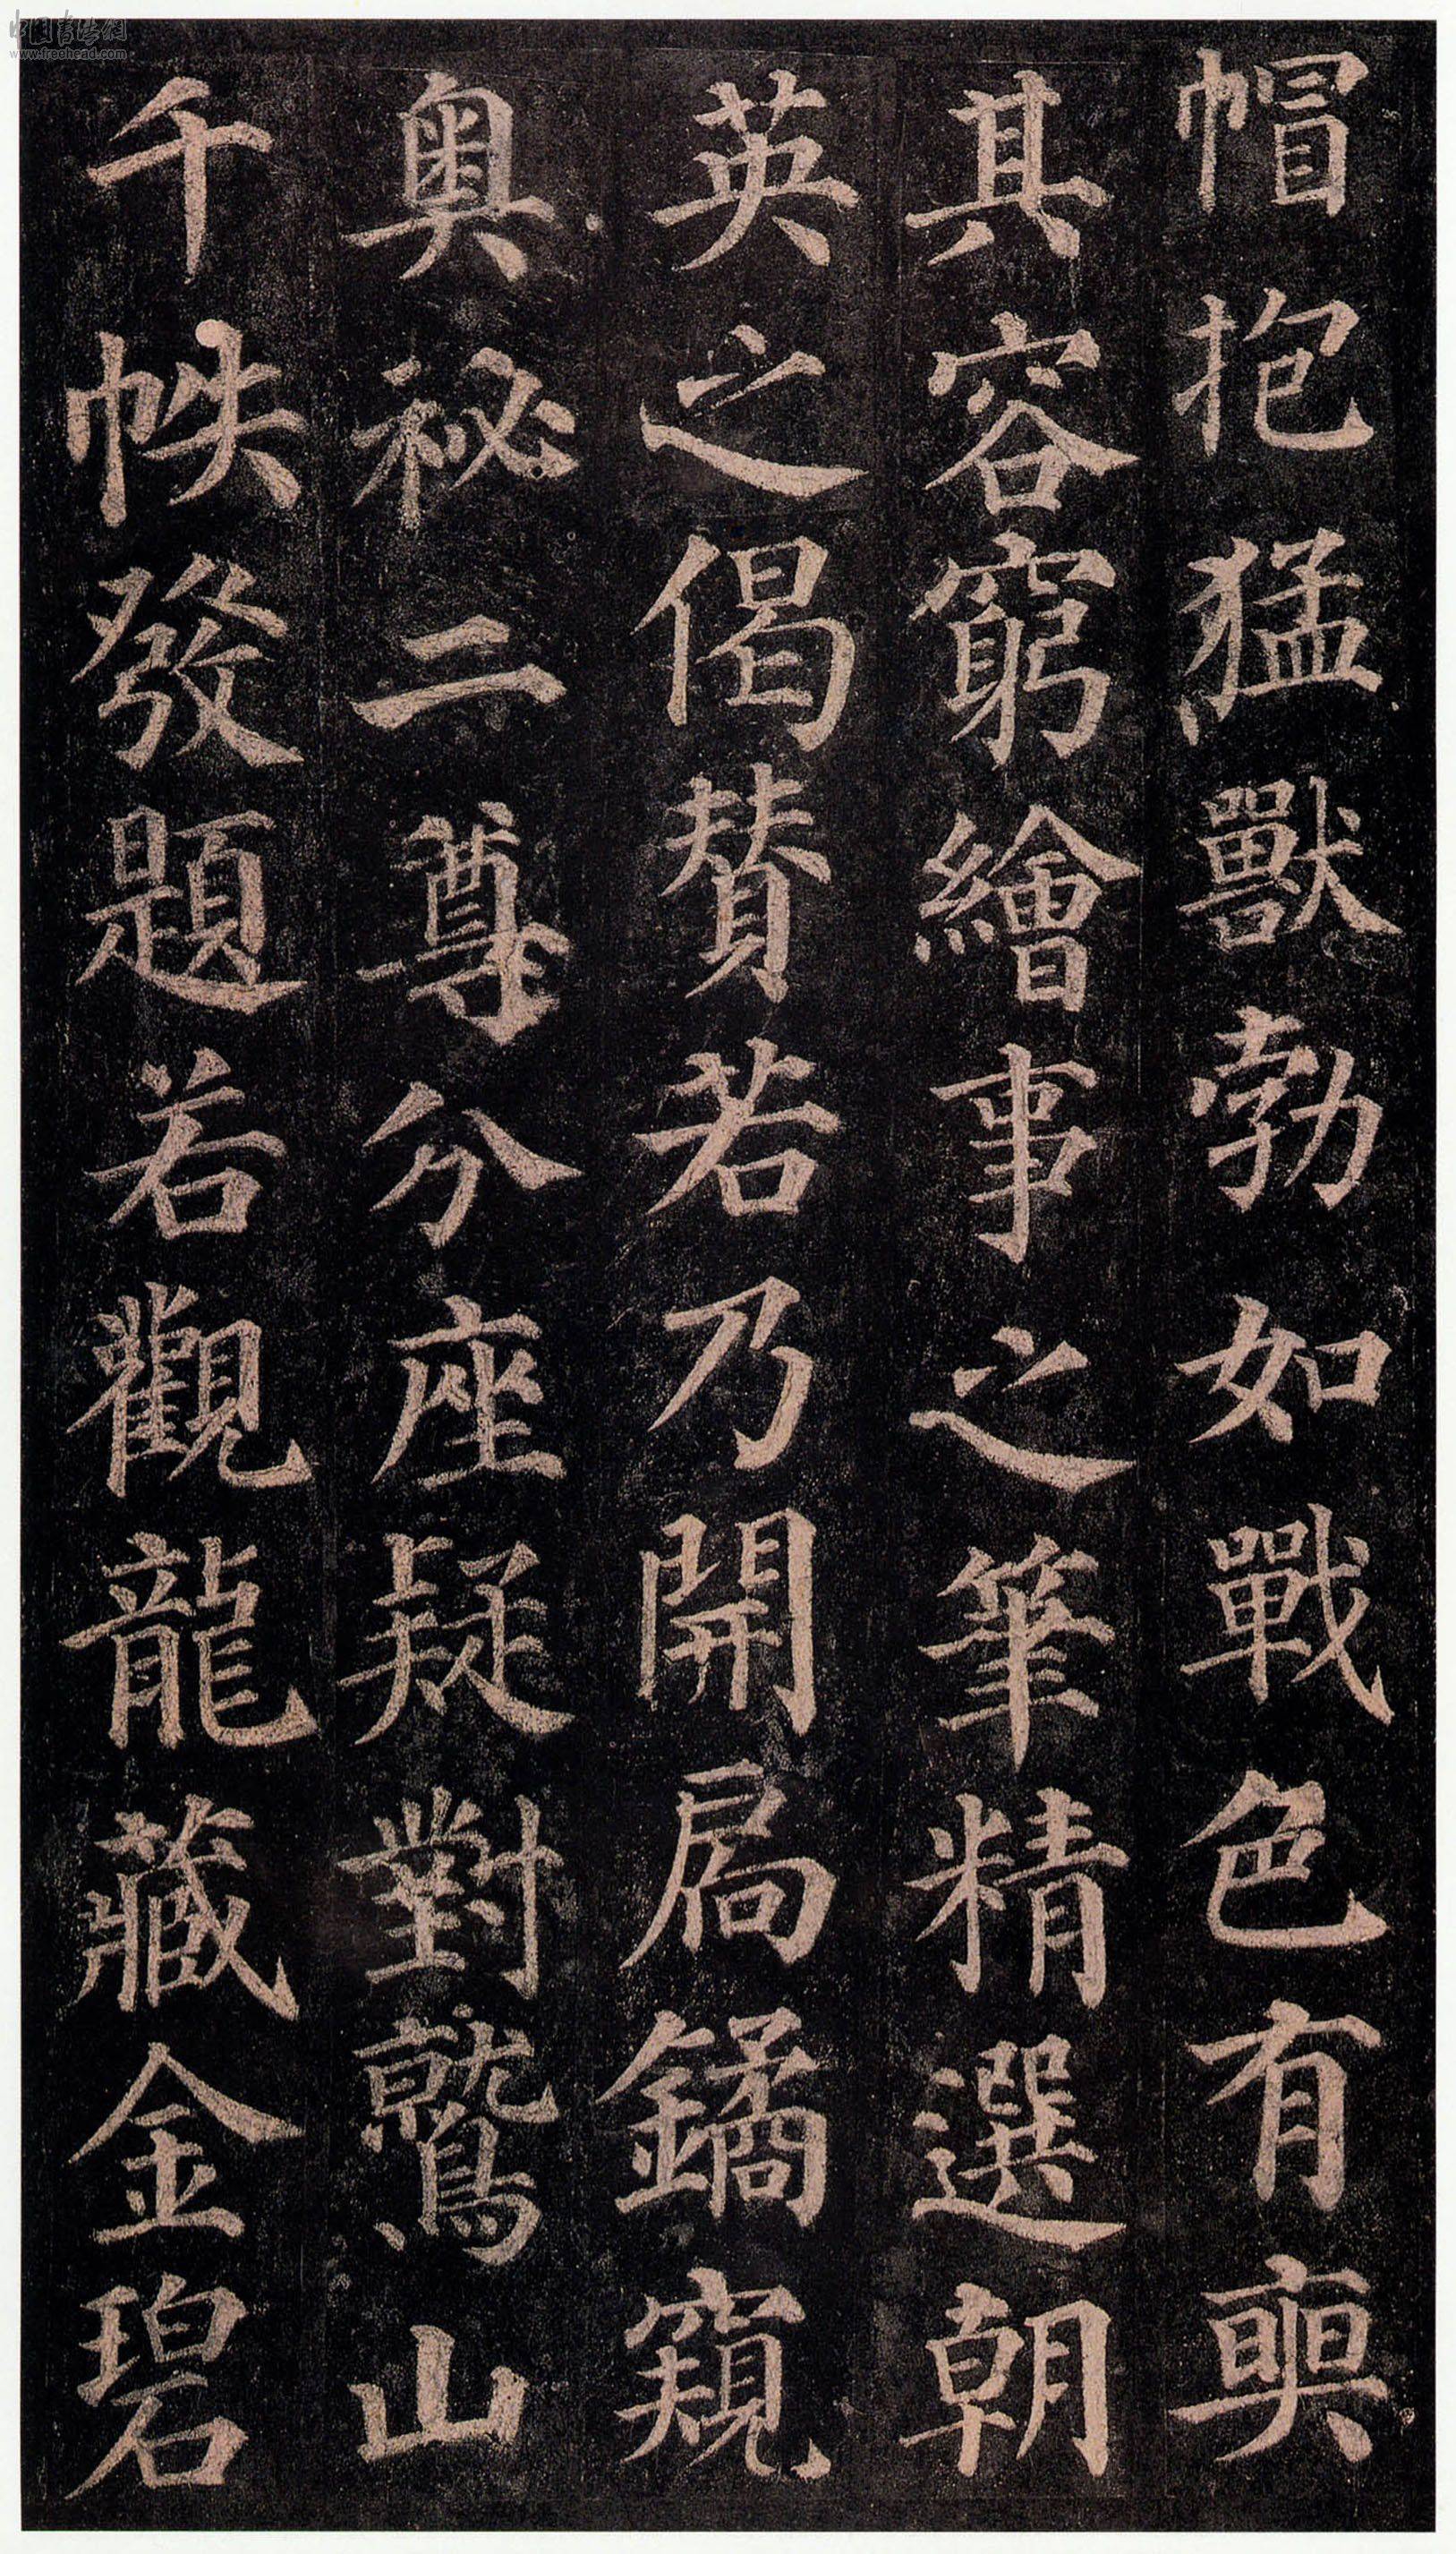 帽抱猛獸勃如戰色有奭
其容窮繪事之筆精選朝
英之偈賛若乃開扃鐍窺
奧祕二尊分座疑對鷲山
千帙發題若觀龍藏金碧
中国书法网
www.freehead.com